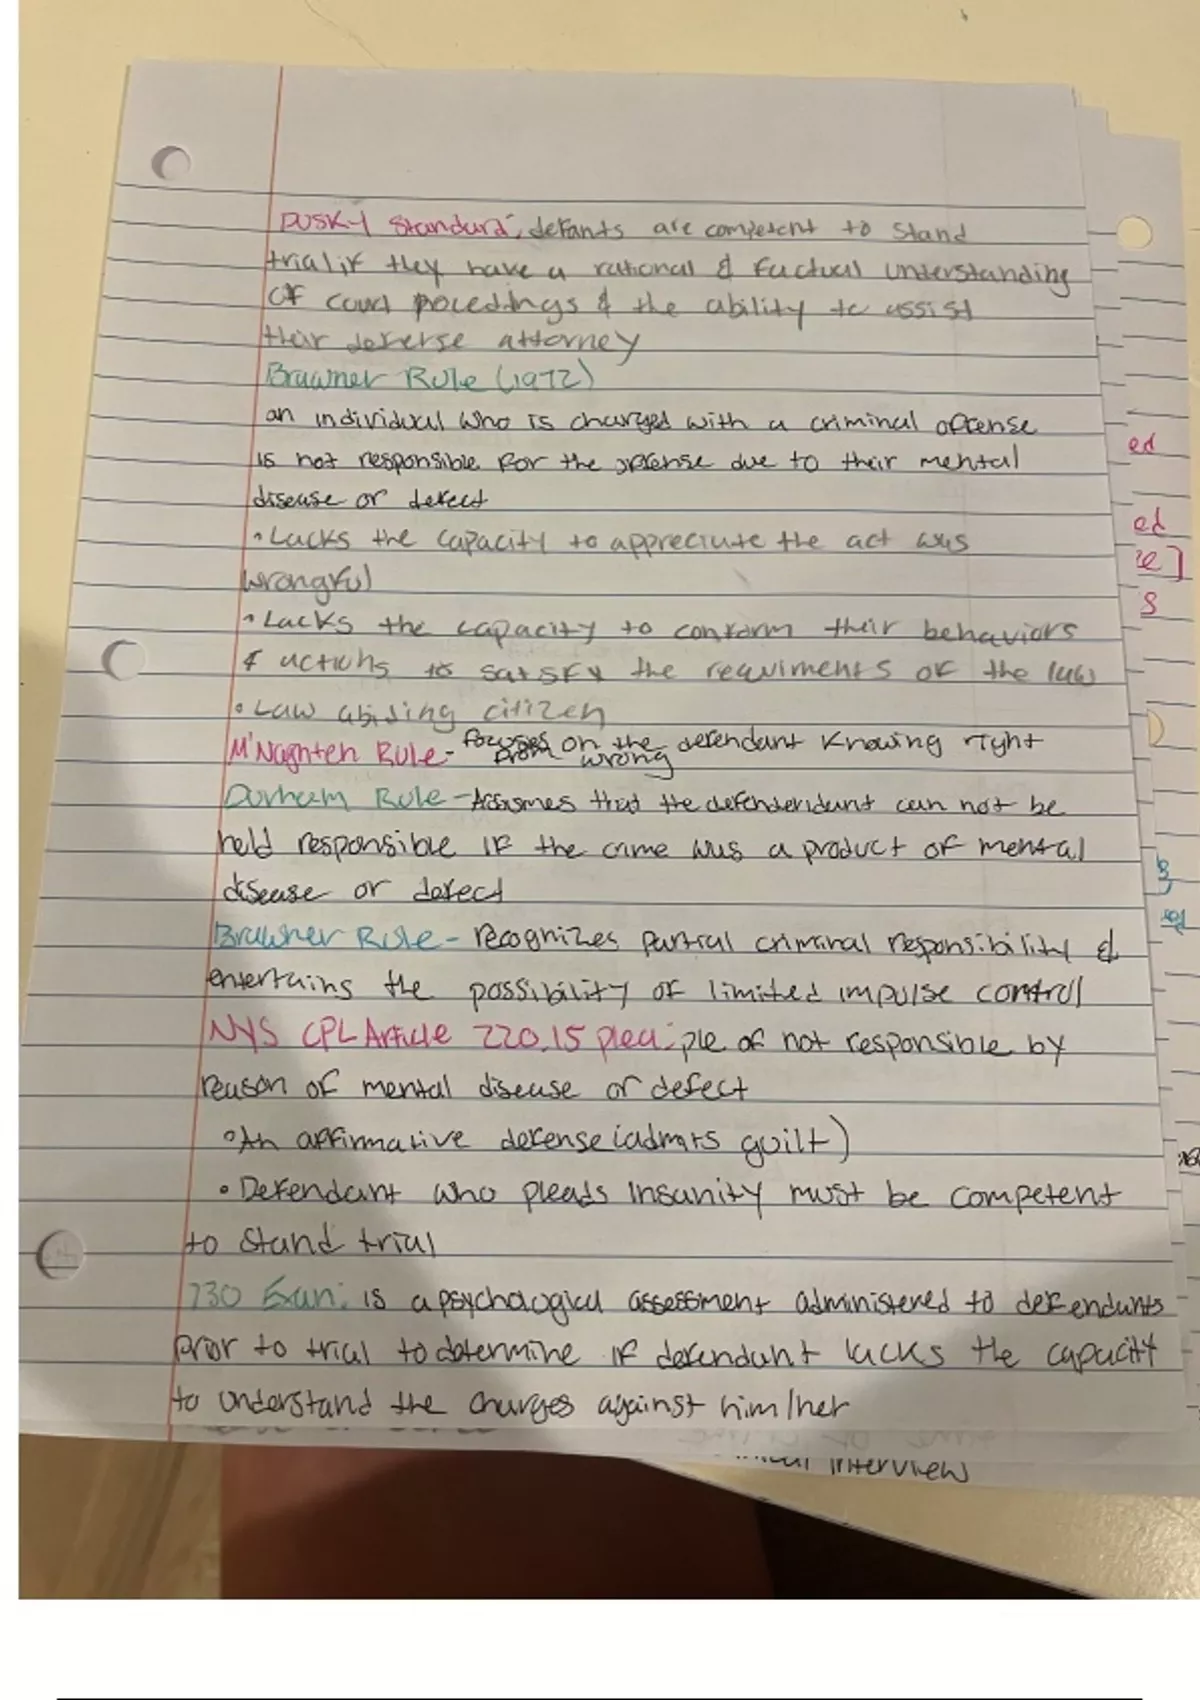 DUSKY Standard: defants are competent to stand
trial if they have a rational & factual understanding
of court pocedings & the ability to assist
their defense attorney
Brawner Rule (1972)
an individual who is charged with a criminal offense
is not responsible for the offense due to their mental
disease or defect
• Lacks the capacity to appreciate the act was
wrongful
• Lacks the capacity to conform their behaviors
& actions to satsfy the requirments of the law
• Law abiding citizen
M'Naghten Rule - focuses on the defendant knowing right
from wrong
Durham Rule - Assumes that the defendendant can not be
held responsible if the crime was a product of mental
disease or defect
Brawner Rule - recognizes partial criminal responsibility &
entertains the possibility of limited impulse control
NYS CPL Article 220.15 plea: ple of not responsible by
reason of mental disease or defect
• An affirmative defense (admits guilt)
• Defendant who pleads insanity must be competent
to stand trial
730 Exam: is a psychological assessment administered to defendants
prior to trial to determine if defendant lacks the capacity
to understand the charges against him/her
interview
ed
ed
e]
s